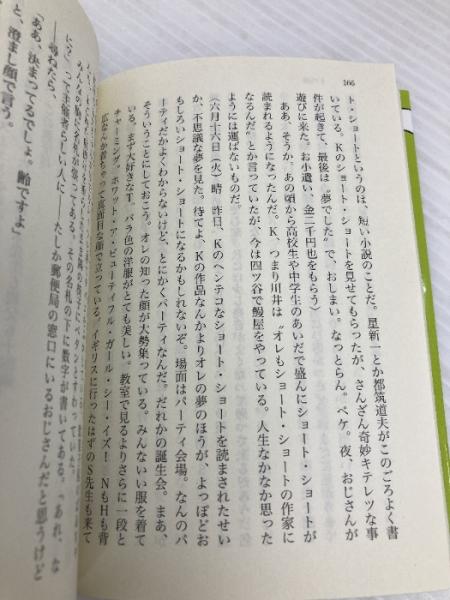 166
ト・ショートというのは、短い小説のことだ。星新一とか都筑道夫がこのごろよく書
いている。Kのショート・ショートを見せてもらったが、さんざん奇妙キテレツな事
件が起きて、最後は〝夢でした〟で、おしまい。なっとらん。ペケ。夜、おじさんが
遊びに来た。お小遣い、金二千円也をもらう）
ああ、そうか。あの頃から高校生や中学生のあいだで盛んにショート・ショートが
読まれるようになったんだ。K、つまり川井は〝オレもショート・ショートの作家に
なるんだ〟とか言っていたが、今は四ツ谷で鰻屋をやっている。人生なかなか思った
ようには運ばないものだ。
〔六月十六日（火）晴 昨日、Kのヘンテコなショート・ショートを読まされたせい
か、不思議な夢を見た。待てよ、Kの作品なんかよりオレの夢のほうが、よっぽどお
もしろいショート・ショートになるかもしれないぞ。場面はパーティ会場。なんのパ
ーティだかよくわからないけど、とにかくパーティなんだ。だれかの誕生会。まあ、
そういうことにしておこう。オレの知った顔が大勢集っている。みんないい服を着て
いる。まず大好きなT。バラ色の洋服がとても美しい。教室で見るよりさらに一段と
チャーミング。ホワット・ア・ビューティフル・ガール・シー・イズ！ NもHも背
広なんか着ちゃって真面目な顔で立っている。イギリスに行ったはずのS先生も来て
ペタンとすわっていた。
あんなの胸に名札が張ってある。その名札の下に数字が書いてある。「あれ、な
って主催者らしい人に、たしか郵便局の窓口にいるおじさんだと思うけど
――尋ねたら、
「ああ、決まってるでしょ。齢ですよ」
と、澄まし顔で言う。